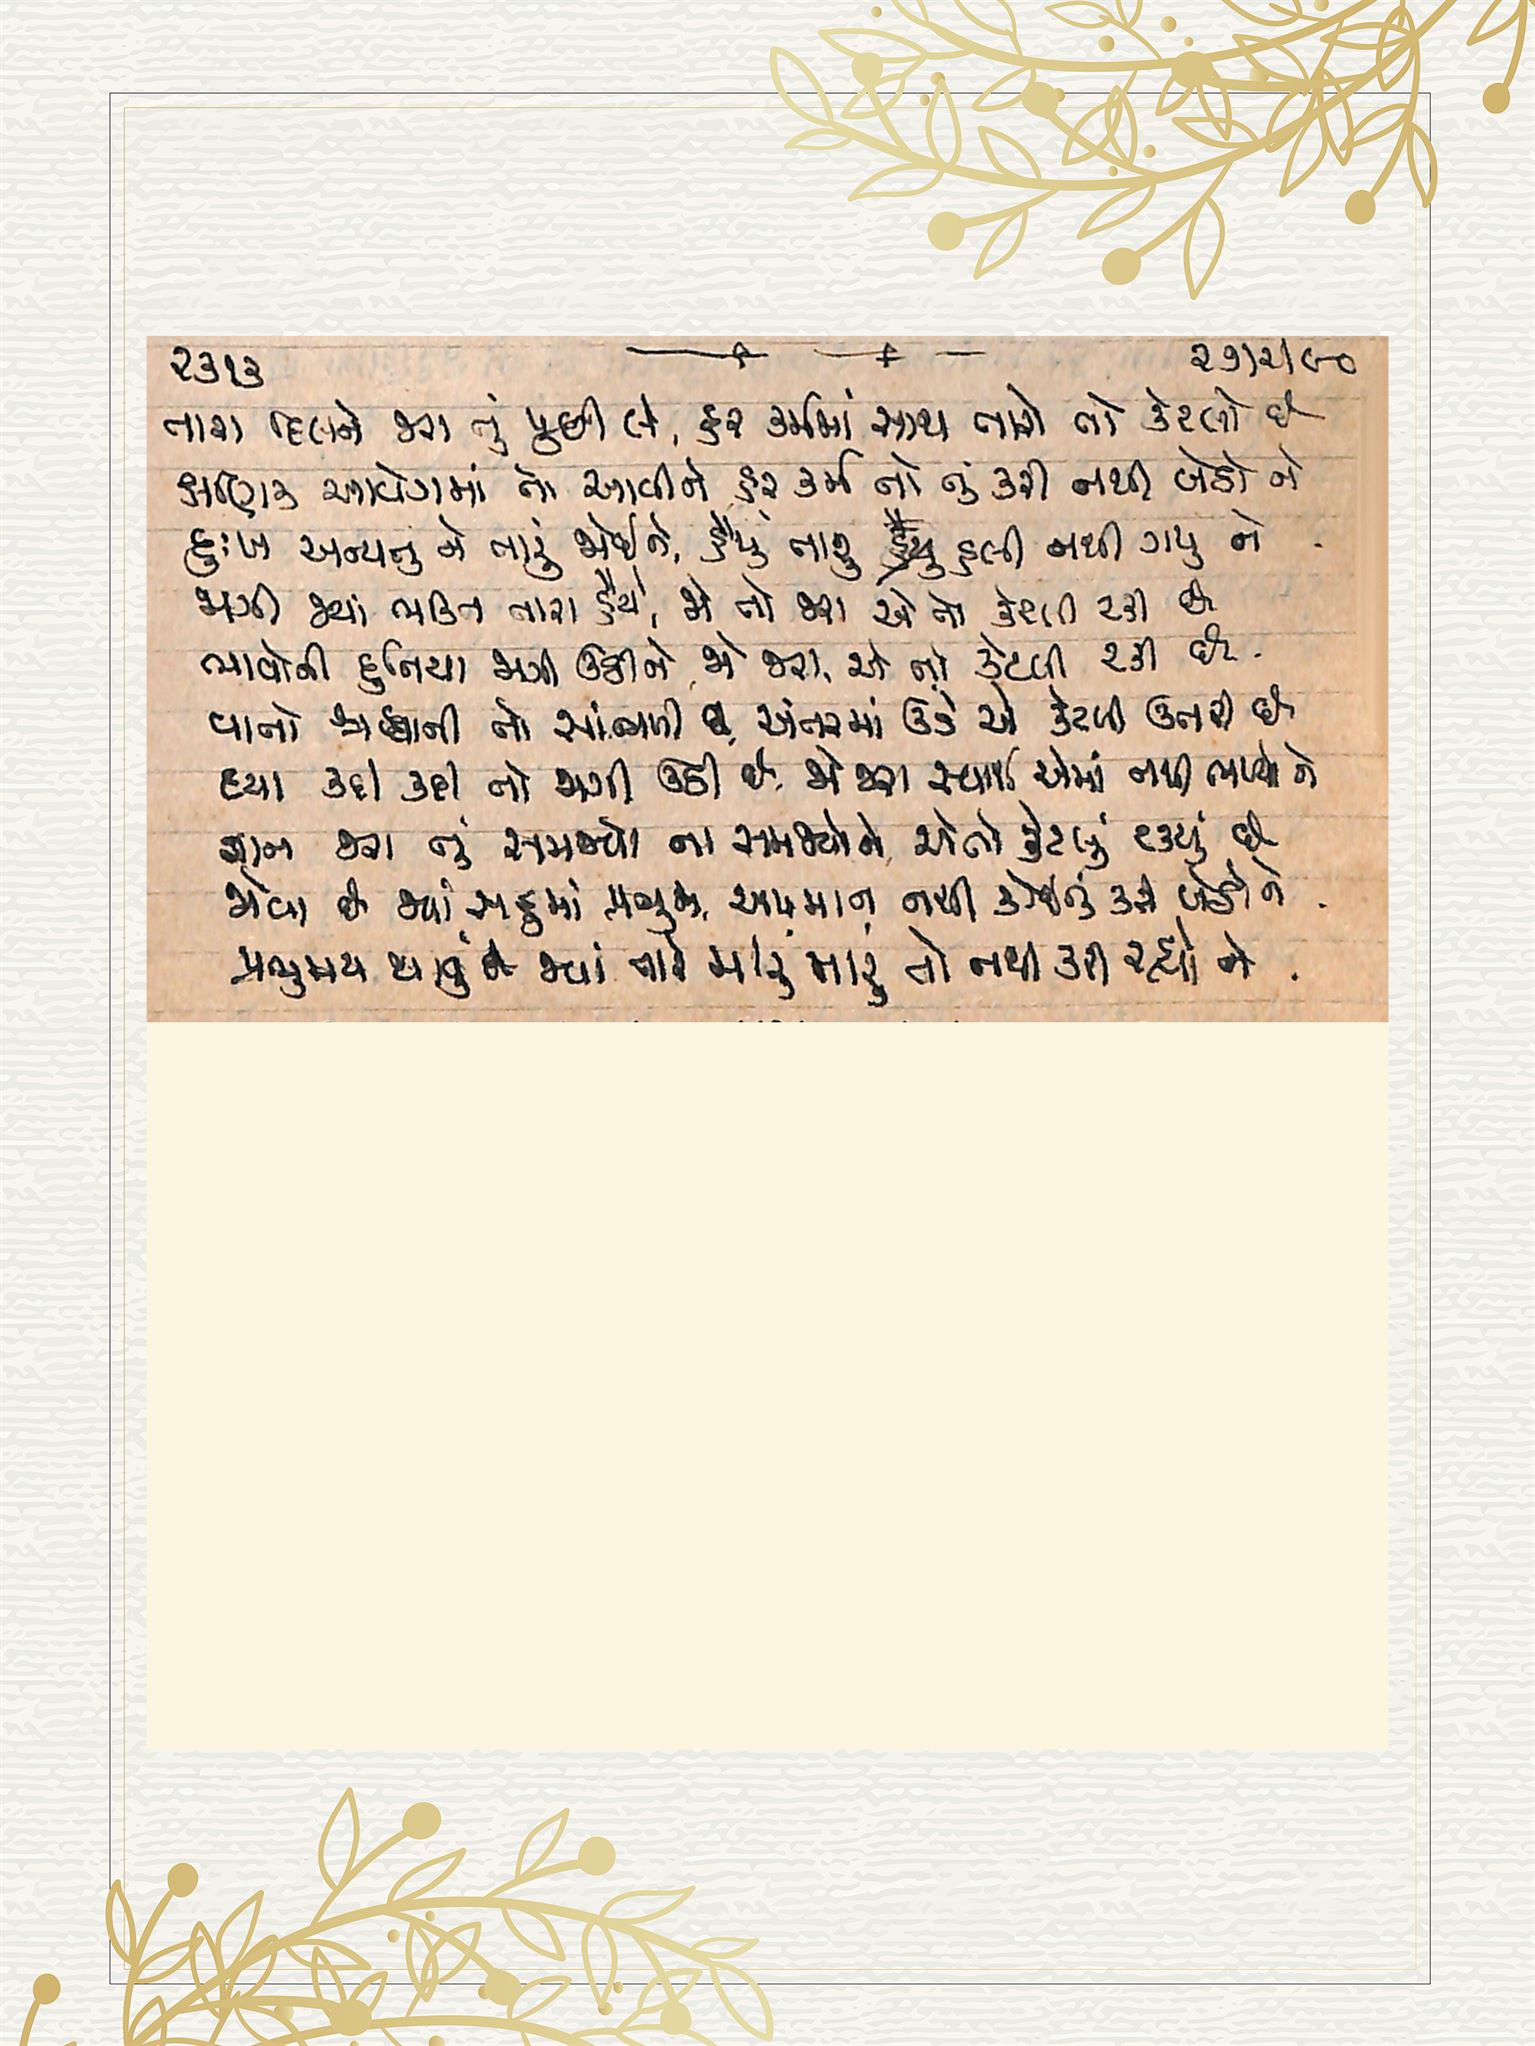 ૨૩૧૩ ૨૭/૨/૯૦
તારા દિલને જરા તું પુછી લે, ક્રુર કર્મમાં સાથ તારો તો કેટલો છે
ક્ષણિક આવેગમાં તો આવીને ક્રુર કર્મ તો તું કરી નથી બેઠો ને
દુઃખ અન્યનું ને તારું જોઈને, હૈયું તારૂ હલી નથી ગયુ ને .
જાગી જ્યાં ભક્તિ તારા હૈયે, જો તો જરા એ તો કેટલી ટકી છે
ભાવોની દુનિયા જાગી ઉઠીને જો જરા, એ તો કેટલી ટકી છે.
વાતો જ્ઞાનની તો સાંભળી અંતરમાં ઉંડે એ કેટલી ઉતરી છે
દયા કદી કદી તો જાગી ઉઠી છે, જો જરા સ્વાર્થ એમાં નથી ભળ્યો ને
જ્ઞાન જરા તું સમજ્યો ના સમજ્યોને, એ તો કેટલું ટક્યું છે
જોવા છે જ્યાં સહુમાં પ્રભુને, અપમાન નથી કોઈનું કરી બેઠો ને .
પ્રભુમય થાવું છે જ્યાં તારે મારું મારું તો નથી કરી રહ્યો ને .